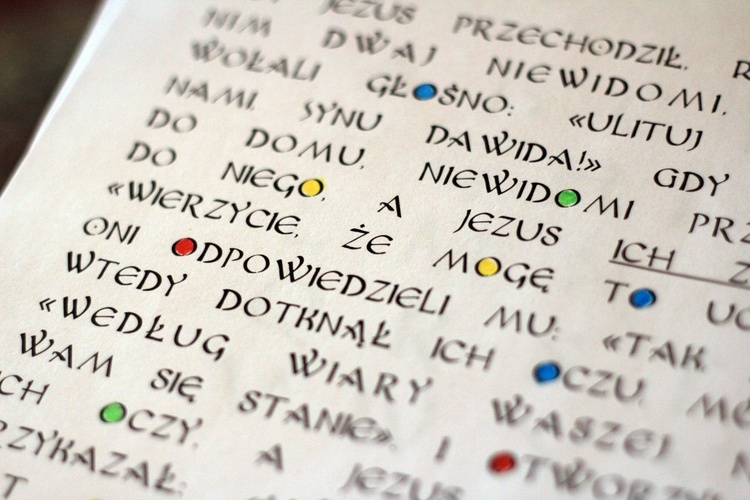 JEZUS PRZECHODZIŁ, R
NIM DWAJ NIEWIDOMI,
WOŁALI GŁOŚNO: «ULITUJ
NAMI, SYNU DAWIDA!» GDY
DO DOMU, NIEWIDOMI PRZ
DO NIEGO, A JEZUS ICH Z
«WIERZYCIE, ŻE MOGĘ TO UC
ONI ODPOWIEDZIELI MU: «TAK
WTEDY DOTKNĄŁ ICH OCZU, MÓ
«WEDŁUG WIARY WASZEJ N
WAM SIĘ STANIE». I OTWORZ
ICH OCZY, A JEZUS
RZYKAZAŁ: